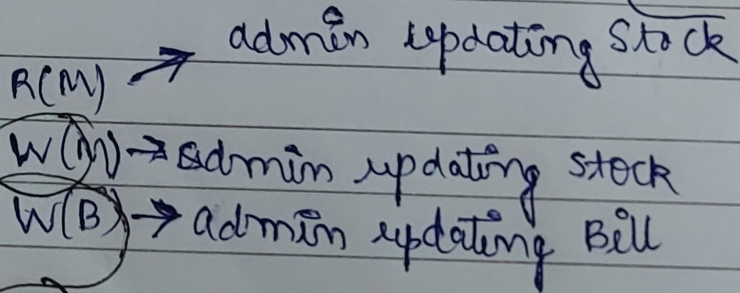 R(M) → admin updating Stock
W(M) → admin updating stock
W(B) → admin updating Bill